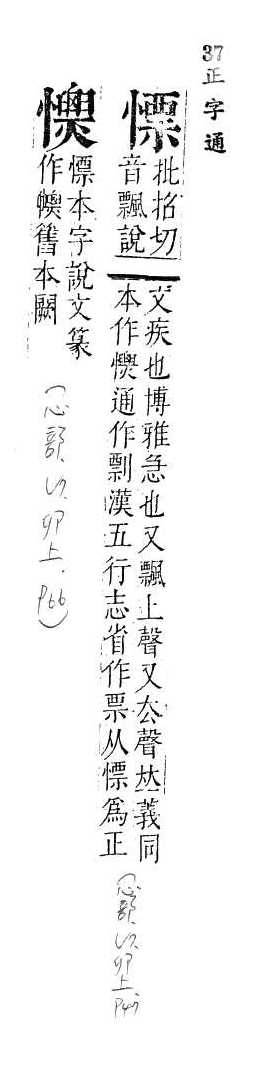 37正字通
慓
批招切
音飄說
文疾也博雅急也又飄上聲又厺聲𠀤義同
本作通作剽漢五行志省作票从慓爲正
(心部、卯上、P47
慓本字說文篆
作舊本闕
(心部、卯上、P66)